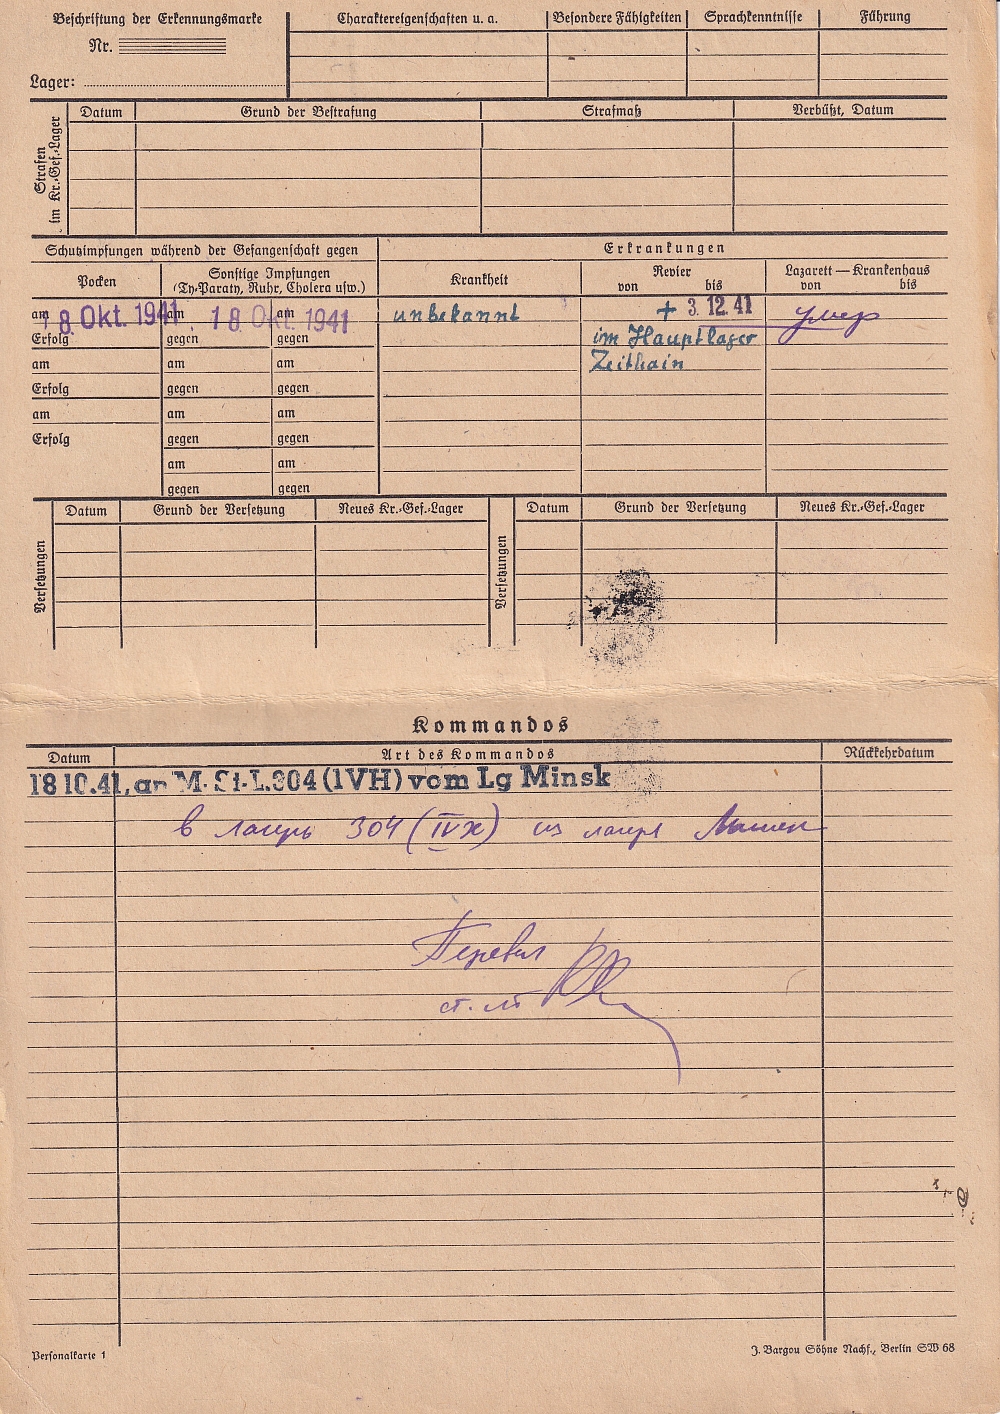 Beschriftung der Erkennungsmarke
Nr.
Lager:
Charaktereigenschaften u. a.
Besondere Fähigkeiten
Sprachkenntnisse
Führung
Strafen im Kr.-Gef.-Lager
Datum
Grund der Bestrafung
Strafmaß
Verbüßt, Datum
Schutzimpfungen während der Gefangenschaft gegen
Erkrankungen
Pocken
Sonstige Impfungen
(Ty.-Paraty., Ruhr, Cholera usw.)
Krankheit
Revier
von bis
Lazarett — Krankenhaus
von bis
am 18. Okt. 1941 am am 18 Okt. 1941 unbekannt + 3. 12. 41 умер
Erfolg gegen gegen im Hauptlager
am am am Zeithain
Erfolg gegen gegen
am am am
Erfolg gegen gegen
am am
gegen gegen
Versetzungen
Datum
Grund der Versetzung
Neues Kr.-Gef.-Lager
Versetzungen
Datum
Grund der Versetzung
Neues Kr.-Gef.-Lager
Kommandos
Datum
Art des Kommandos
Rückkehrdatum
18 10. 41, an M. St-L. 304 (IVH) vom Lg Minsk
в лагерь 304 (IVх) из лагеря Минск
Перевел
ст. лт
Personalkarte 1
J. Bargou Söhne Nachf., Berlin SW 68